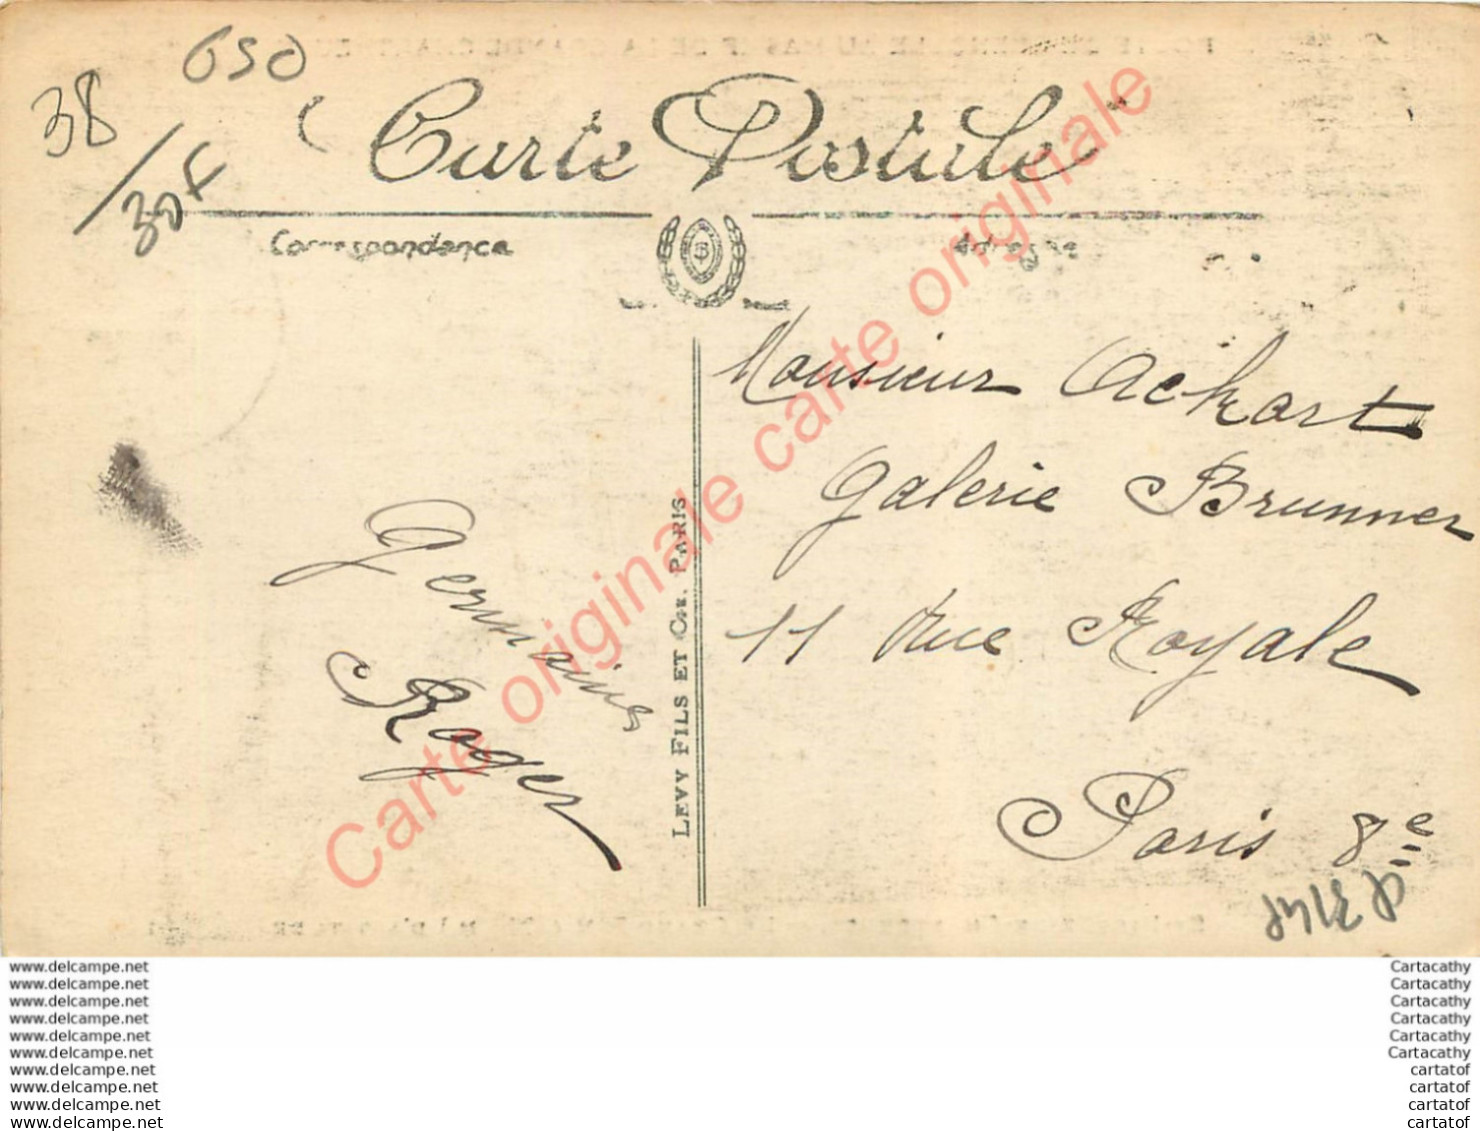 650
38
30F
Carte Postale
Correspondance
Adresse
Monsieur Ackart
Galerie Brunner
11 Rue Royale
Paris 8e
Germaine
Roger
LEVY FILS ET CIE. PARIS
Carte originale carte originale carte originale
www.delcampe.net
www.delcampe.net
www.delcampe.net
www.delcampe.net
www.delcampe.net
www.delcampe.net
www.delcampe.net
www.delcampe.net
www.delcampe.net
www.delcampe.net
Cartacathy
Cartacathy
Cartacathy
Cartacathy
Cartacathy
Cartacathy
cartatof
cartatof
cartatof
cartatof